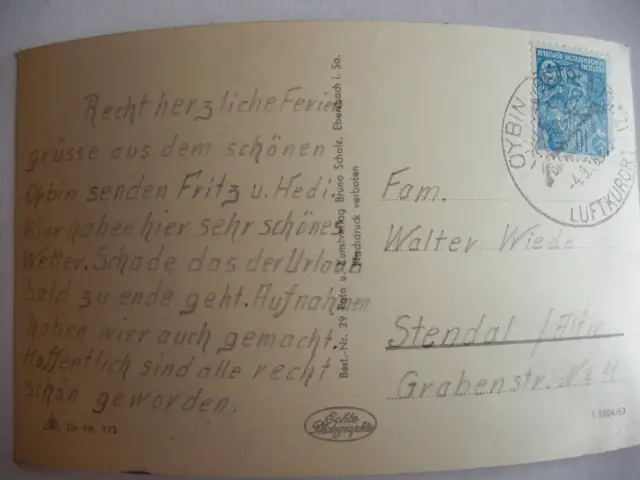 Recht herzliche Ferien
grüsse aus dem schönen
Oybin senden Fritz u. Hedi.
Wier haben hier sehr schönes
Wetter. Schade das der Urlaub
bald zu ende geht. Aufnahmen
haben wier auch gemacht.
Hoffentlich sind alle recht
schön geworden.
Best.-Nr. 29 Foto u. Kunstverlag Bruno Scholz, Ebersbach i. Sa.
Nachdruck verboten
DEUTSCHE
DEMOKRATISCHE REPUBLIK
OYBIN
LUFTKURORT
-4.9.
Fam.
Walter Wiede
Stendal /Altm
Grabenstr. Nr 11
Echte
Photographie